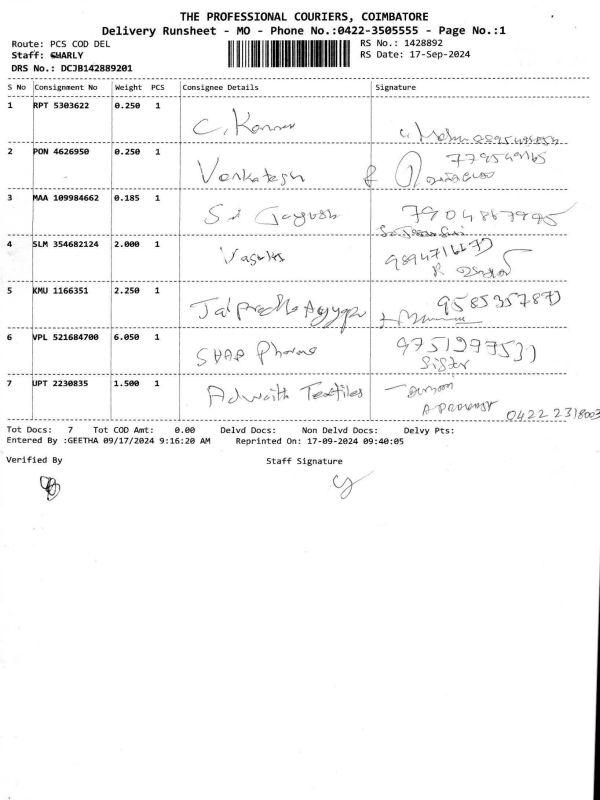 THE PROFESSIONAL COURIERS, COIMBATORE
Delivery Runsheet - MO - Phone No.:0422-3505555 - Page No.:1
Route: PCS COD DEL
RS No.: 1428892
Staff: CHARLY
RS Date: 17-Sep-2024
DRS No.: DCJB142889201
S No Consignment No Weight PCS Consignee Details Signature
1 RPT 5303622 0.250 1
2 PON 4626950 0.250 1 Venkatesh
3 MAA 109984662 0.185 1 Sri
4 SLM 354682124 2.000 1
5 KMU 1166351 2.250 1
6 VPL 521684700 6.050 1 Pharma
Sister
7 UPT 2230835 1.500 1 Adwaith Textiles
0422 2318003
Tot Docs: 7 Tot COD Amt: 0.00 Delvd Docs: Non Delvd Docs: Delvy Pts:
Entered By :GEETHA 09/17/2024 9:16:20 AM Reprinted On: 17-09-2024 09:40:05
Verified By Staff Signature